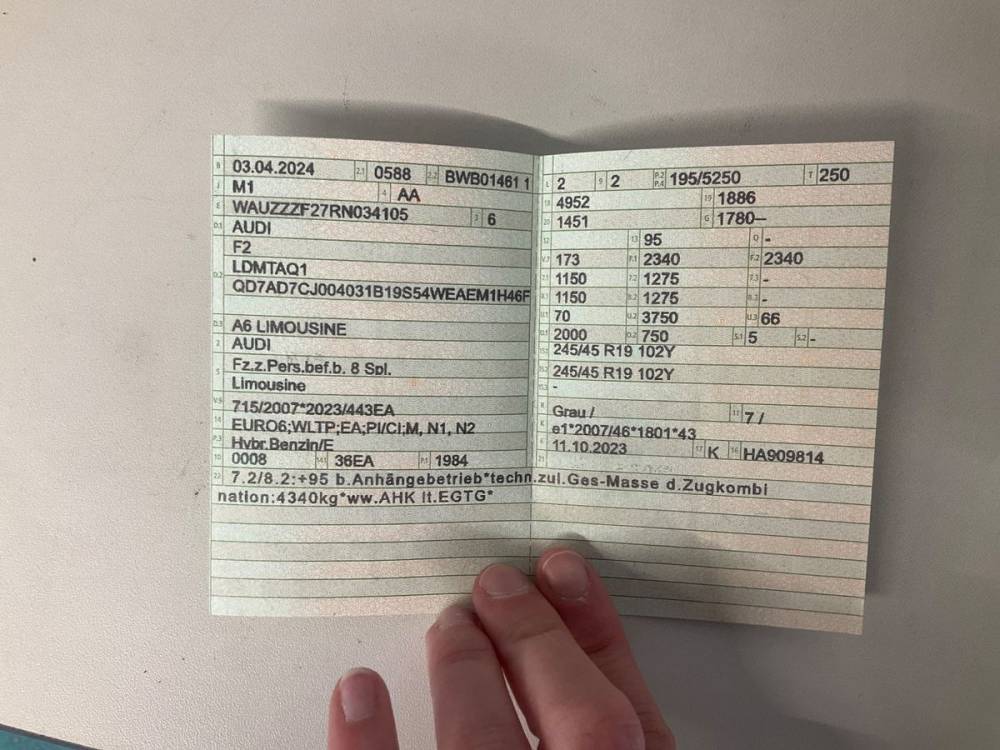 B 03.04.2024 2.1 0588 2.2 BWB01461 1
J M1 4 AA
E WAUZZZF27RN034105 3 6
D.1 AUDI
F2
D.2 LDMTAQ1
QD7AD7CJ004031B19S54WEAEM1H46F
D.3 A6 LIMOUSINE
2 AUDI
5 Fz.z.Pers.bef.b. 8 Spl.
Limousine
V.9 715/2007*2023/443EA
14 EURO6;WLTP;EA;PI/CI;M, N1, N2
P.3 Hybr.Benzin/E
10 0008 14.1 36EA P.1 1984
L 2 9 2 P.2 P.4 195/5250 T 250
18 4952 19 1886
20 1451 G 1780–
12 13 95 Q -
V.7 173 F.1 2340 F.2 2340
7.1 1150 7.2 1275 7.3 -
8.1 1150 8.2 1275 8.3 -
U.1 70 U.2 3750 U.3 66
O.1 2000 O.2 750 S.1 5 S.2 -
15.1 245/45 R19 102Y
15.2 245/45 R19 102Y
15.3 -
R Grau / 11 7 /
K e1*2007/46*1801*43
6 11.10.2023 17 K 16 HA909814
21
22 7.2/8.2:+95 b.Anhängebetrieb*techn.zul.Ges-Masse d.Zugkombi
nation:4340kg*ww.AHK lt.EGTG*